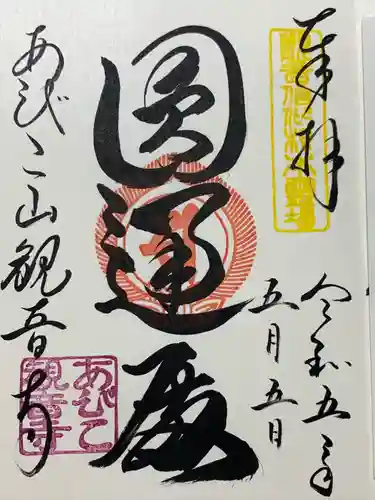 奉拝
令和五年
五月五日
圓通殿
あびこ山観音寺
あびこ
観音寺